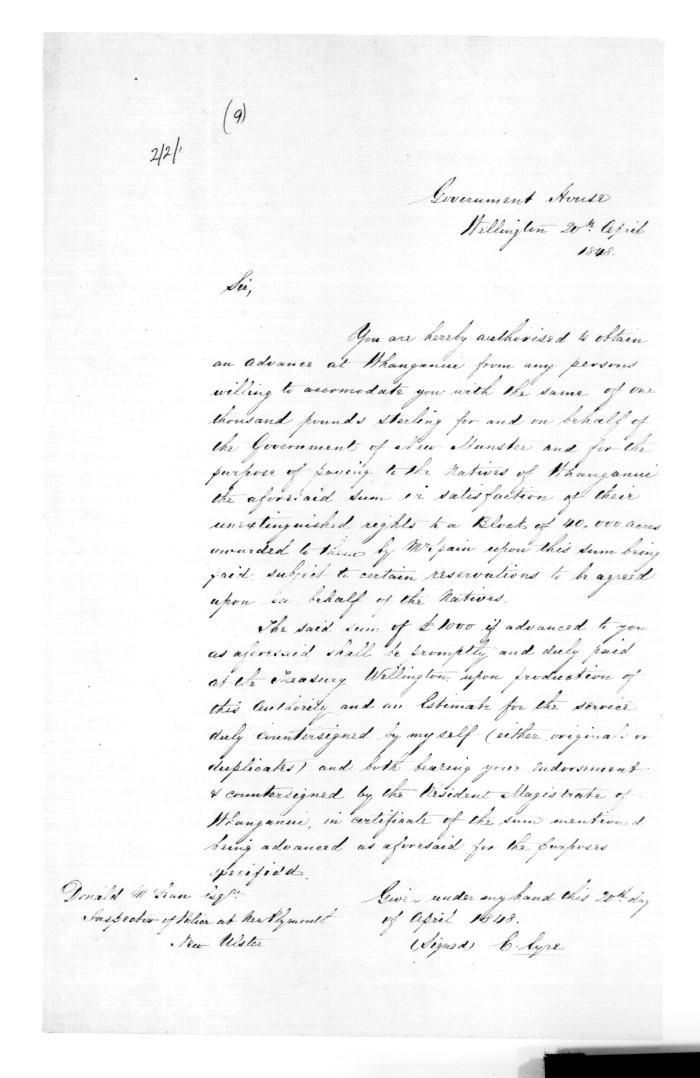 (9)
2/2/1
Government House
Wellington 20th April
1848.
Sir,
You are hereby authorised to obtain
an advance at Whanganui from any persons
willing to accomodate you with the same of one
thousand pounds sterling for and on behalf of
the Government of New Munster and for the
purpose of paying to the Natives of Whanganui
the aforesaid sum in satisfaction of their
unextinguished rights to a Block of 40,000 acres
awarded to them by Mr Spain upon this sum being
paid, subject to certain reservations to be agreed
upon on behalf of the Natives.
The said sum of £1000 if advanced to you
as aforesaid shall be promptly and duly paid
at the Treasury Wellington, upon production of
this Authority and an Estimate for the service
duly countersigned by myself (either originals or
duplicates) and both bearing your endorsement
& countersigned by the Resident Magistrate of
Whanganui, in certificate of the sum mentioned
being advanced as aforesaid for the purposes
specified.
Given under my hand this 20th day
of April 1848.
(Signed) E. Eyre
Donald McLean Esqre.
Inspector of Police at New Plymouth
New Ulster